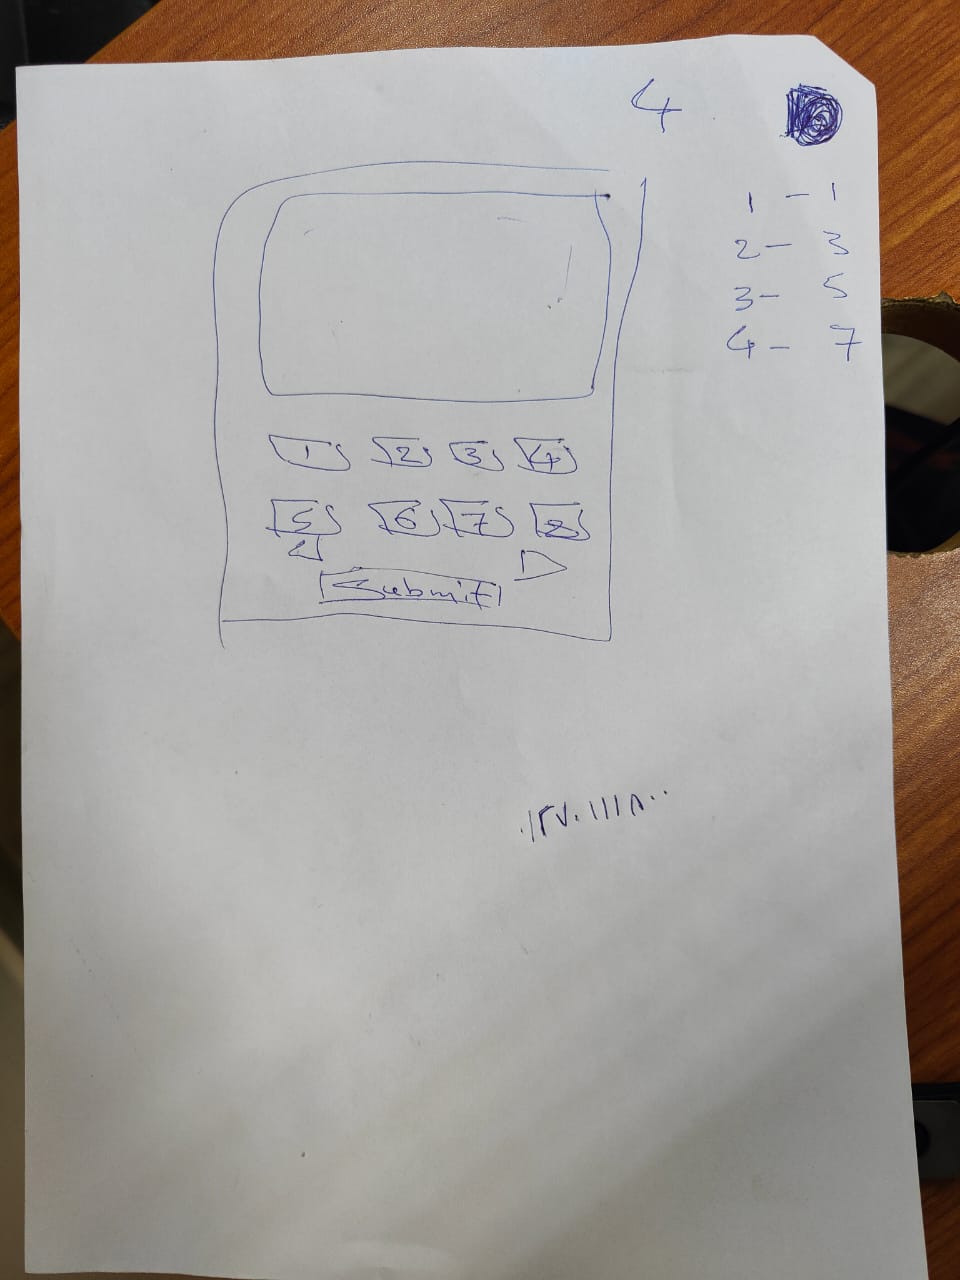 4
1 - 1
2 - 3
3 - 5
4 - 7
1 2 3 4
5 6 7 8
Submit
٠١٢٧٠١١١٨٠٠